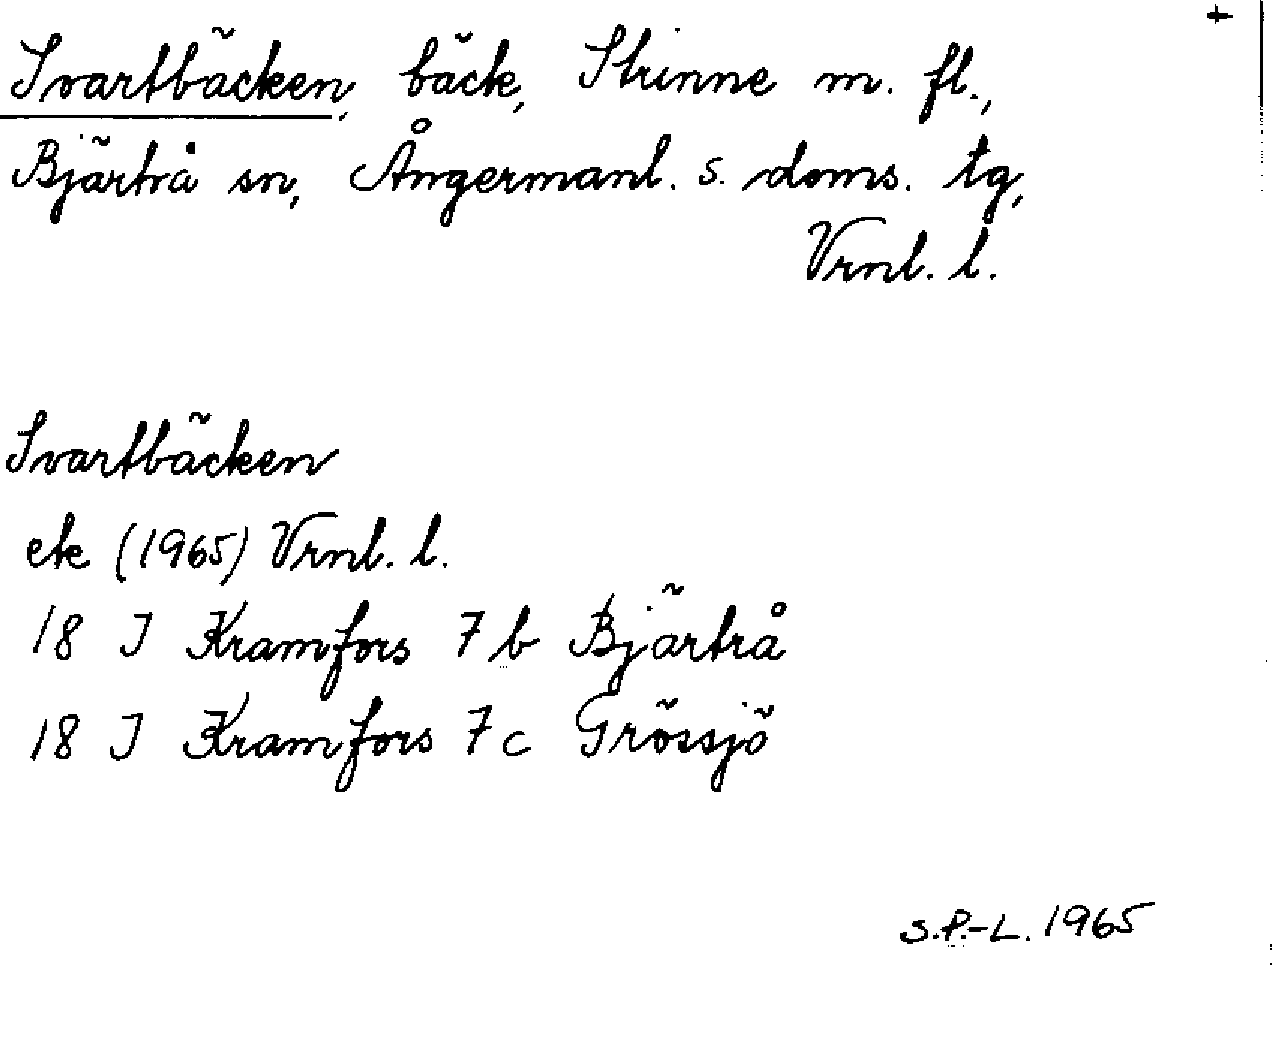 +
Svartbäcken, bäck, Strinne m. fl.,
Bjärtrå sn, Ångermanl. s. doms. tg,
Vrnl. l.
Svartbäcken
ek (1965) Vrnl. l.
18 I Kramfors 7 b Bjärtrå
18 I Kramfors 7 c Grössjö
S.P.-L. 1965